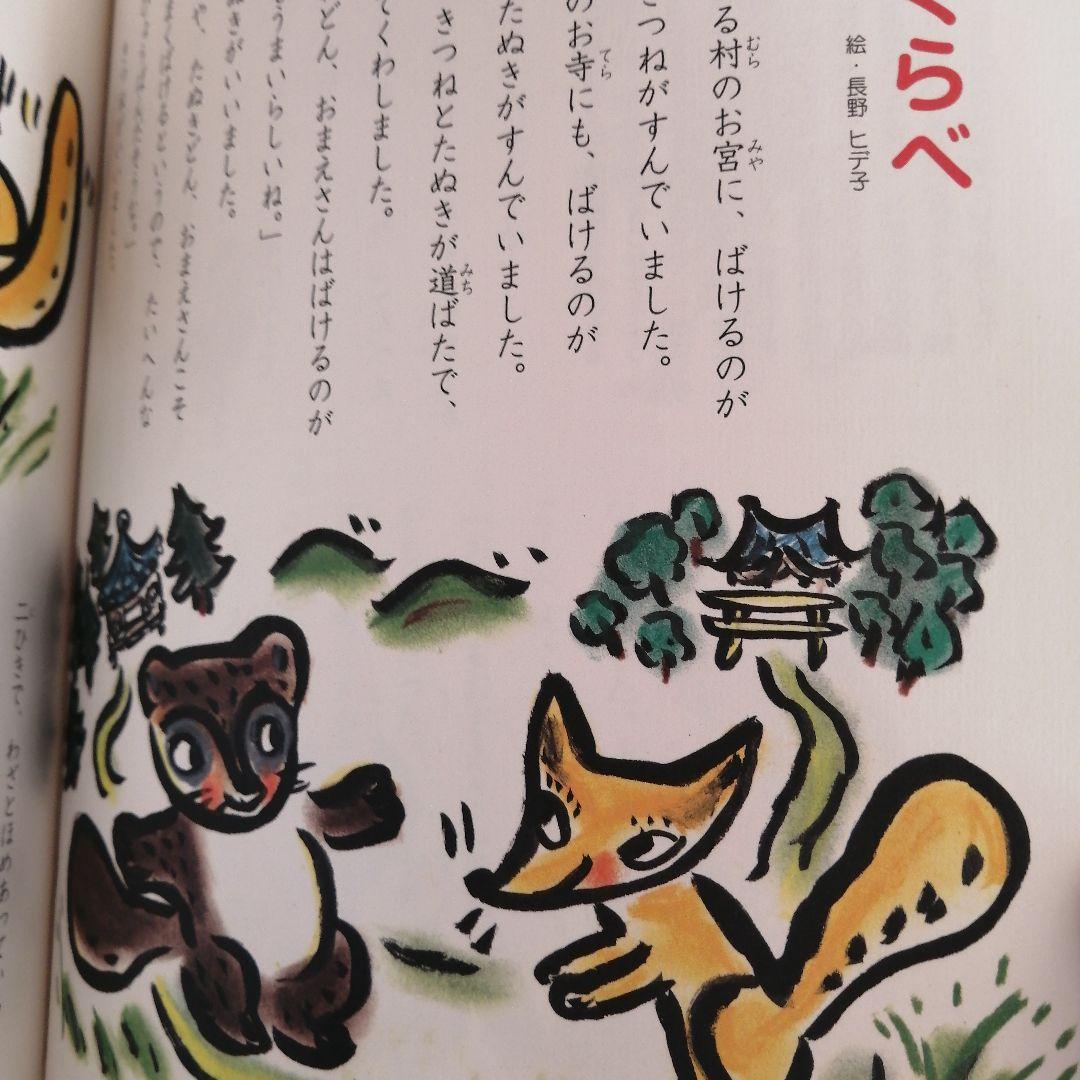 くらべ
絵・長野 ヒデ子
る村のお宮に、ばけるのが
つねがすんでいました。
のお寺にも、ばけるのが
たぬきがすんでいました。
きつねとたぬきが道ばたで、
てくわしました。
どん、おまえさんはばけるのが
うまいらしいね。」
たぬきどん、おまえさんこそ
がいいました。
というので、たいへんな
二ひきで、わざとほめあってい